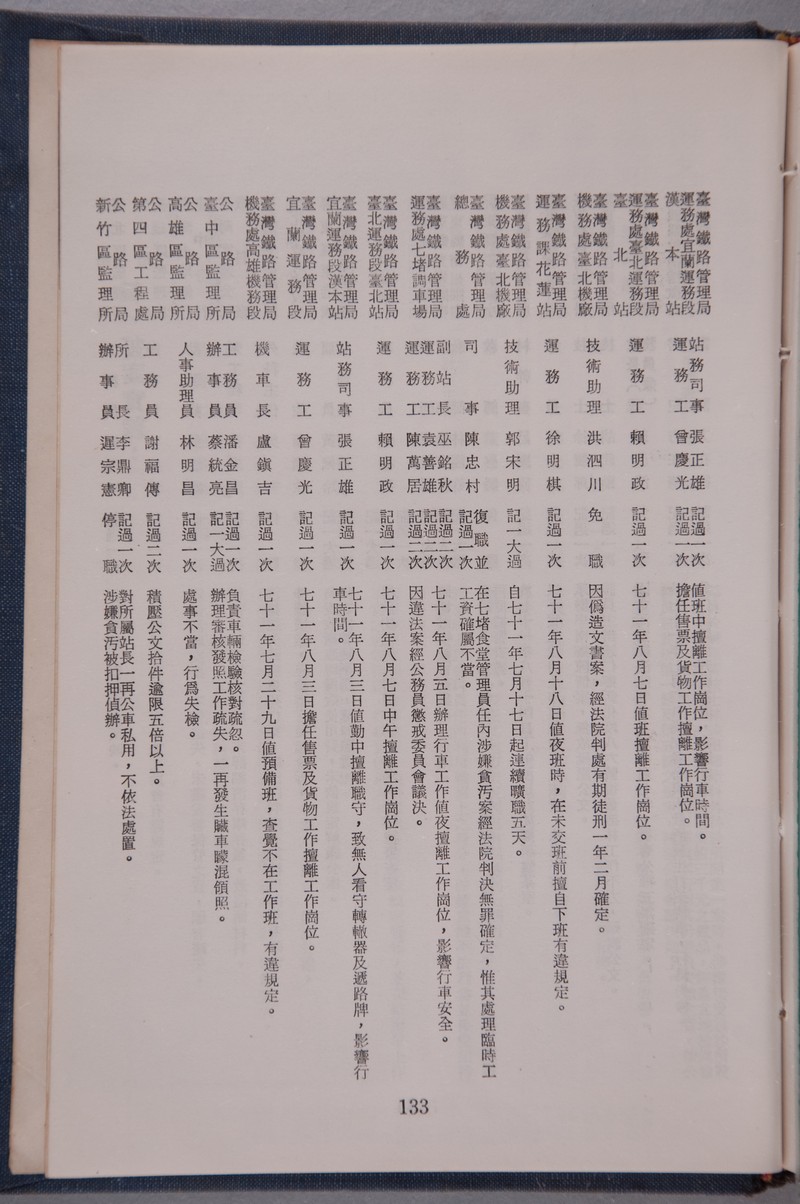 臺灣鐵路管理局
運務處宜蘭運務段
漢本站
站務司事 張正雄 記過一次 值班中擅離工作崗位，影響行車時間。
運務工 曾慶光 記過一次 擔任售票及貨物工作擅離工作崗位。
臺灣鐵路管理局
運務處臺北運務段
臺北站
運務工 賴明政 記過一次 七十一年八月七日值班擅離工作崗位。
臺灣鐵路管理局
機務處臺北機廠
技術助理 洪泗川 免職 因僞造文書案，經法院判處有期徒刑一年二月確定。
臺灣鐵路管理局
運務課花蓮站
運務工 徐明棋 記過一次 七十一年八月十八日值夜班時，在未交班前擅自下班有違規定。
臺灣鐵路管理局
機務處臺北機廠
技術助理 郭宋明 記一大過 自七十一年七月十七日起連續曠職五天。
臺灣鐵路管理局
總務處
司事 陳忠村 復職並記過一次 在七堵食堂管理員任內涉嫌貪污案經法院判決無罪確定，惟其處理臨時工
工資確屬不當。
臺灣鐵路管理局
運務處七堵調車場
副站長 巫銘秋 記過二次 七十一年八月五日辦理行車工作值夜擅離工作崗位，影響行車安全。
運務工 袁善雄 記過二次
運務工 陳萬居 記過二次 因違法案經公務員懲戒委員會議決。
臺灣鐵路管理局
臺北運務段臺北站
運務工 賴明政 記過一次 七十一年八月七日中午擅離工作崗位。
臺灣鐵路管理局
宜蘭運務段漢本站
站務司事 張正雄 記過一次 七十一年八月三日值勤中擅離職守，致無人看守轉轍器及遞路牌，影響行
車時間。
臺灣鐵路管理局
宜蘭運務段
運務工 曾慶光 記過一次 七十一年八月三日擔任售票及貨物工作擅離工作崗位。
臺灣鐵路管理局
機務處高雄機務段
機車長 盧鎭吉 記過一次 七十一年七月二十九日值預備班，查覺不在工作班，有違規定。
公路局
臺中區監理所
工務員 潘金昌 記過一次 負責車輛檢驗核對疏忽。
辦事員 蔡統亮 記一大過 辦理審核發照工作疏失，一再發生贓車矇混領照。
公路局
高雄區監理所
人事助理員 林明昌 記過一次 處事不當，行爲失檢。
公路局
第四區工程處
工務員 謝福傳 記過二次 積壓公文拾件逾限五倍以上。
公路局
新竹區監理所
所長 李鼎卿 記過一次 對所屬站長一再公車私用，不依法處置。
辦事員 遲宗憲 停職 涉嫌貪污被扣押偵辦。
133